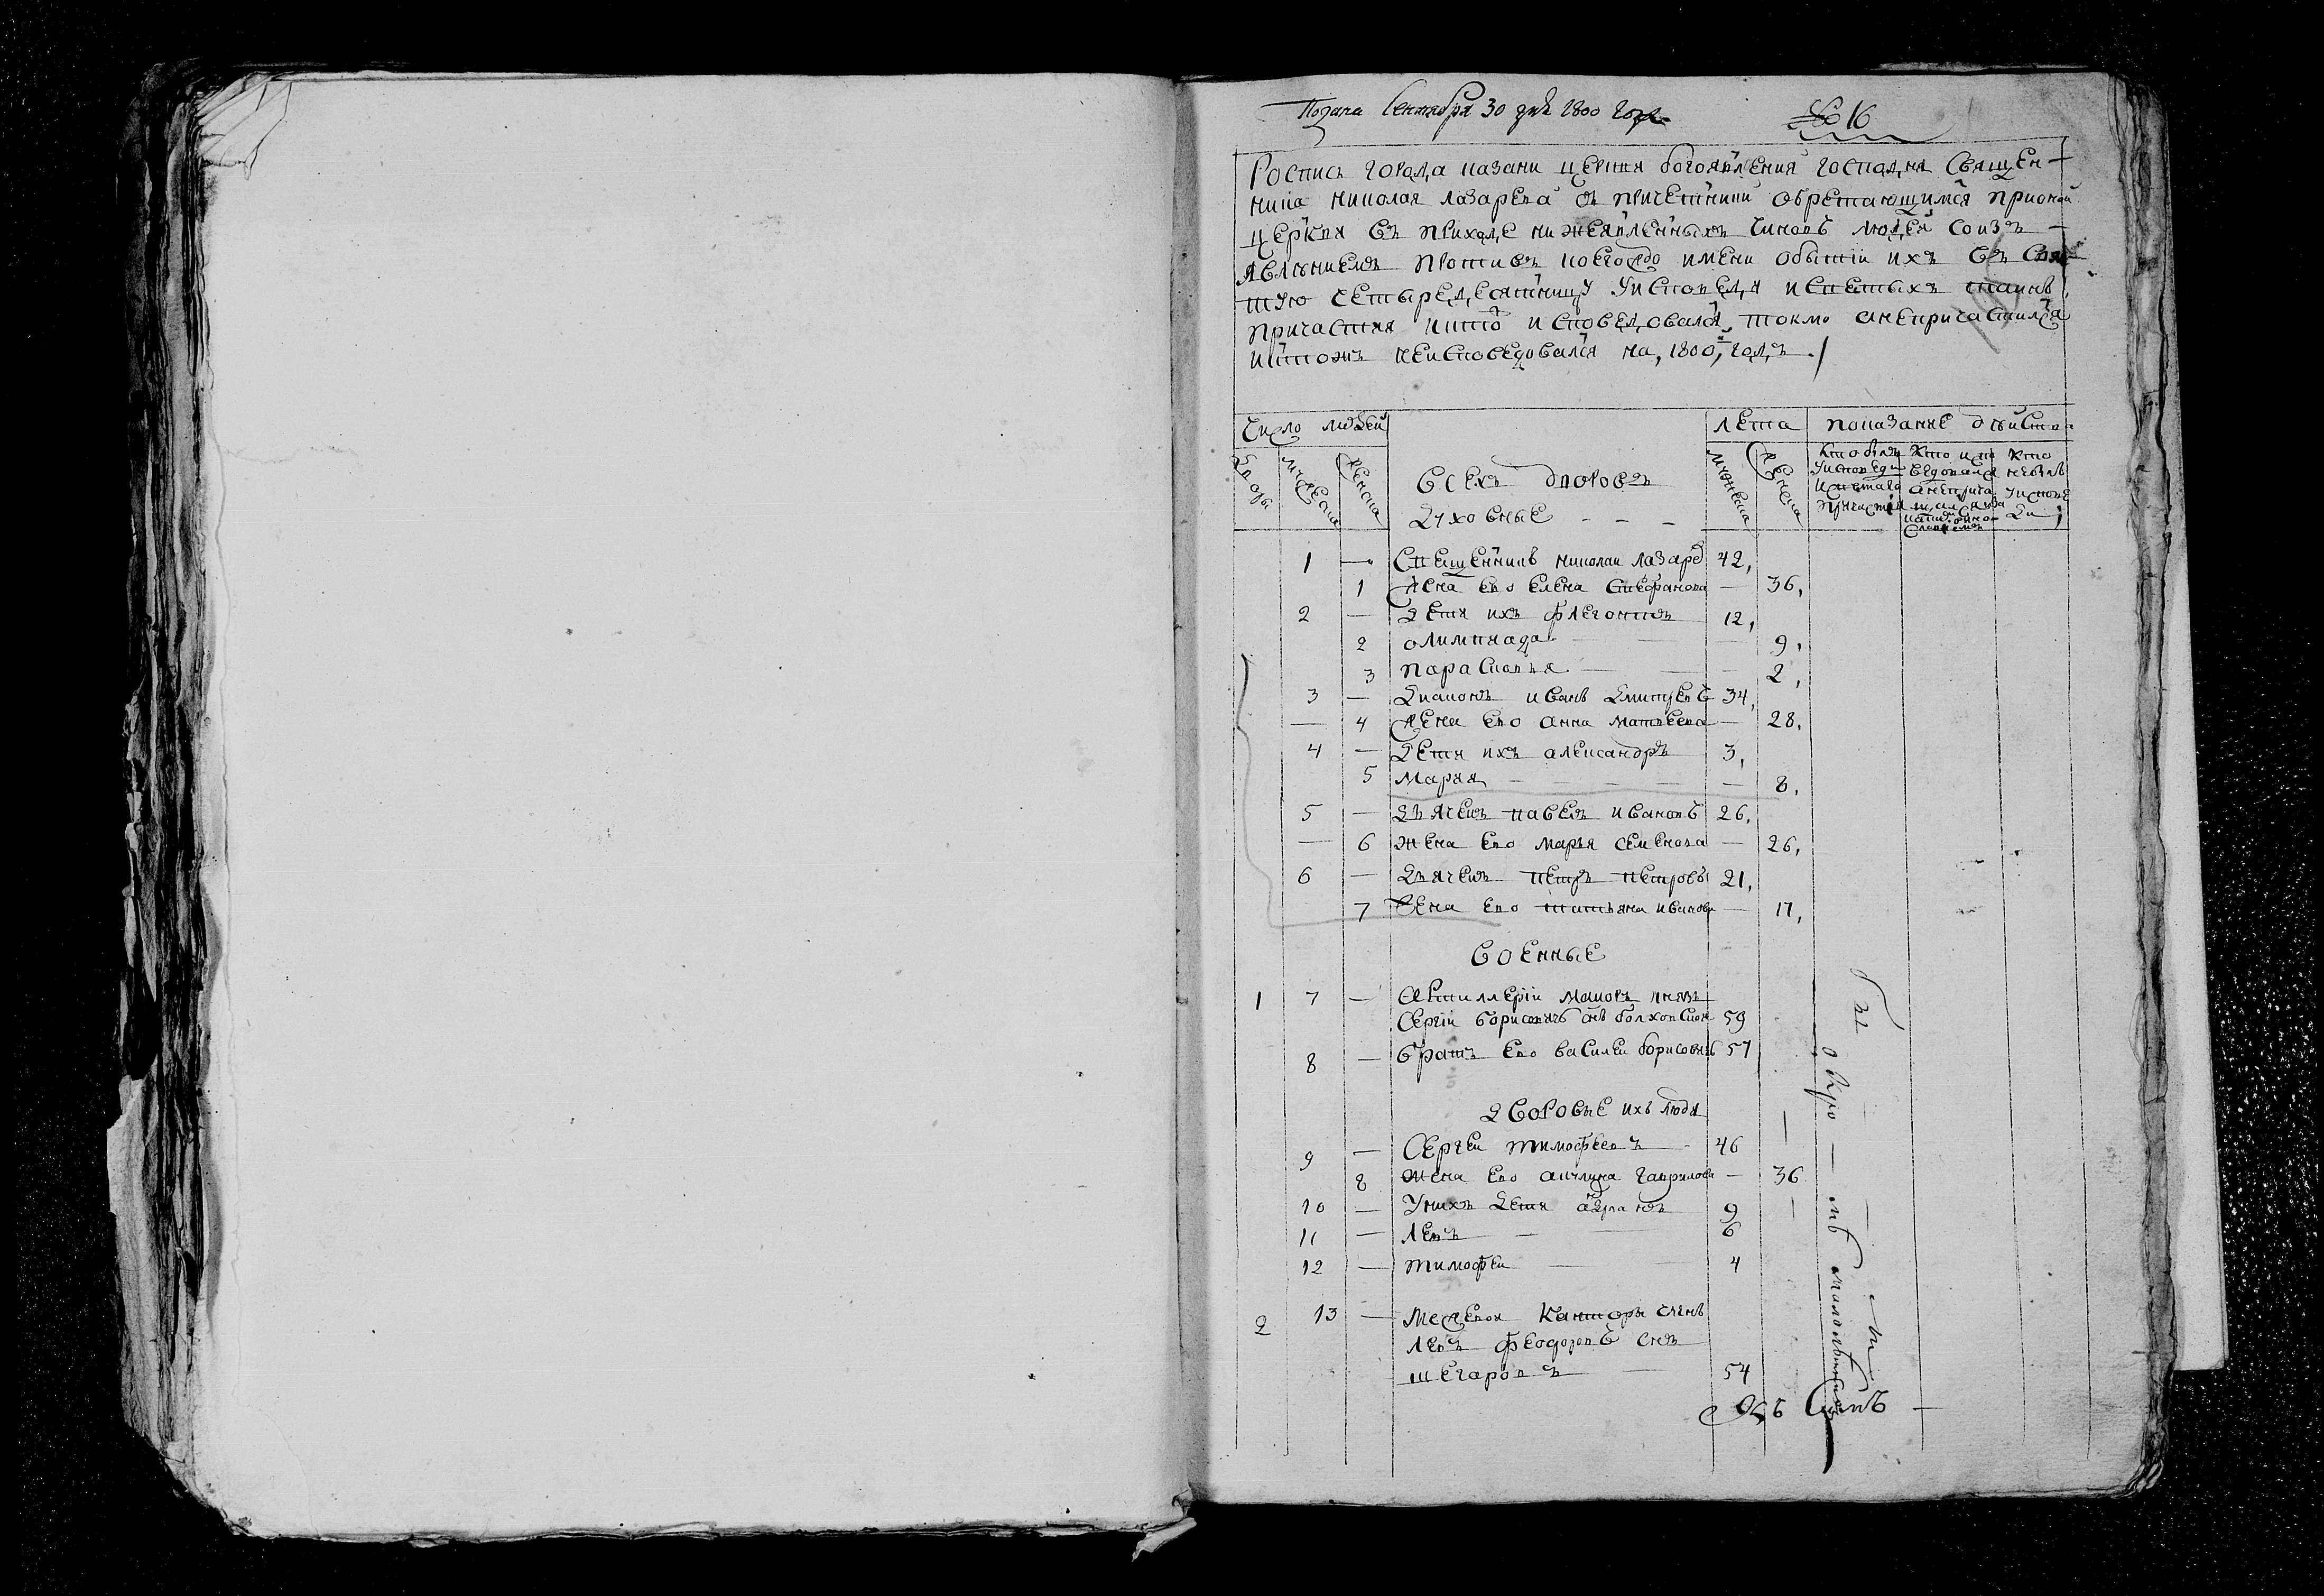 Подана Сентября 30 дня 1800 года
№ 16
Роспись города казани церкви богоявления господня Священ-
ника николая лазарева съ причетники обретающимся прионой
церкви въ приходе нижеявленныхъ чиновъ людей со изъ-
явлениемъ противъ коегождо имени о бытіи ихъ въ свя-
тую четыредесятницу у исповеди и светыхъ таинъ
причастия и кто исповедовался токмо анепричастился
и ктожъ неисповедовался на, 1800, годъ.
Число людей
лета
показание действа
Дворы
мужеска
женска
Всехъ дворовъ
мужеска
женска
Кто былъ
у исповеди
и светаго
причастия
Кто испо
ведовался
анеприча
стился
Кто
небылъ
у испове
ди
Духовные - - -
1 — Свещенникъ николаи лазарев 42,
1 Жена ево елена стефанова — 36,
2 — Дети ихъ флегонтъ 12,
2 олимпиада — — 9,
3 парасковья — — 2,
3 — Диаконъ иванъ Дмитревъ 34,
— 4 Жена ево анна матвеева — 28,
4 — Дети ихъ александръ 3,
5 Мария — — 8,
5 — Дьячекъ павелъ ивановъ 26,
— 6 жена ево марья семенова — 26,
6 — Дьячекъ петръ петровъ 21,
7 Жена ево татьяна иванова — 17,
военные
1 7 — Артиллеріи маиоръ князь
Сергіи борисовичъ снъ болховскои 59
8 — братъ ево василеи борисовичъ 57
Дворовые ихъ люди
9 — Сергеи тимофеевъ 46
8 жена ево акулина гаврилова — 36
10 — У нихъ Дети андреанъ 9
11 — левъ — 6
12 — тимофеи — 4
2 13 — Межевои Канторы членъ
левъ феодоровъ снъ
щегаровъ — 54
бы
о Кро — мѣ малолѣтних